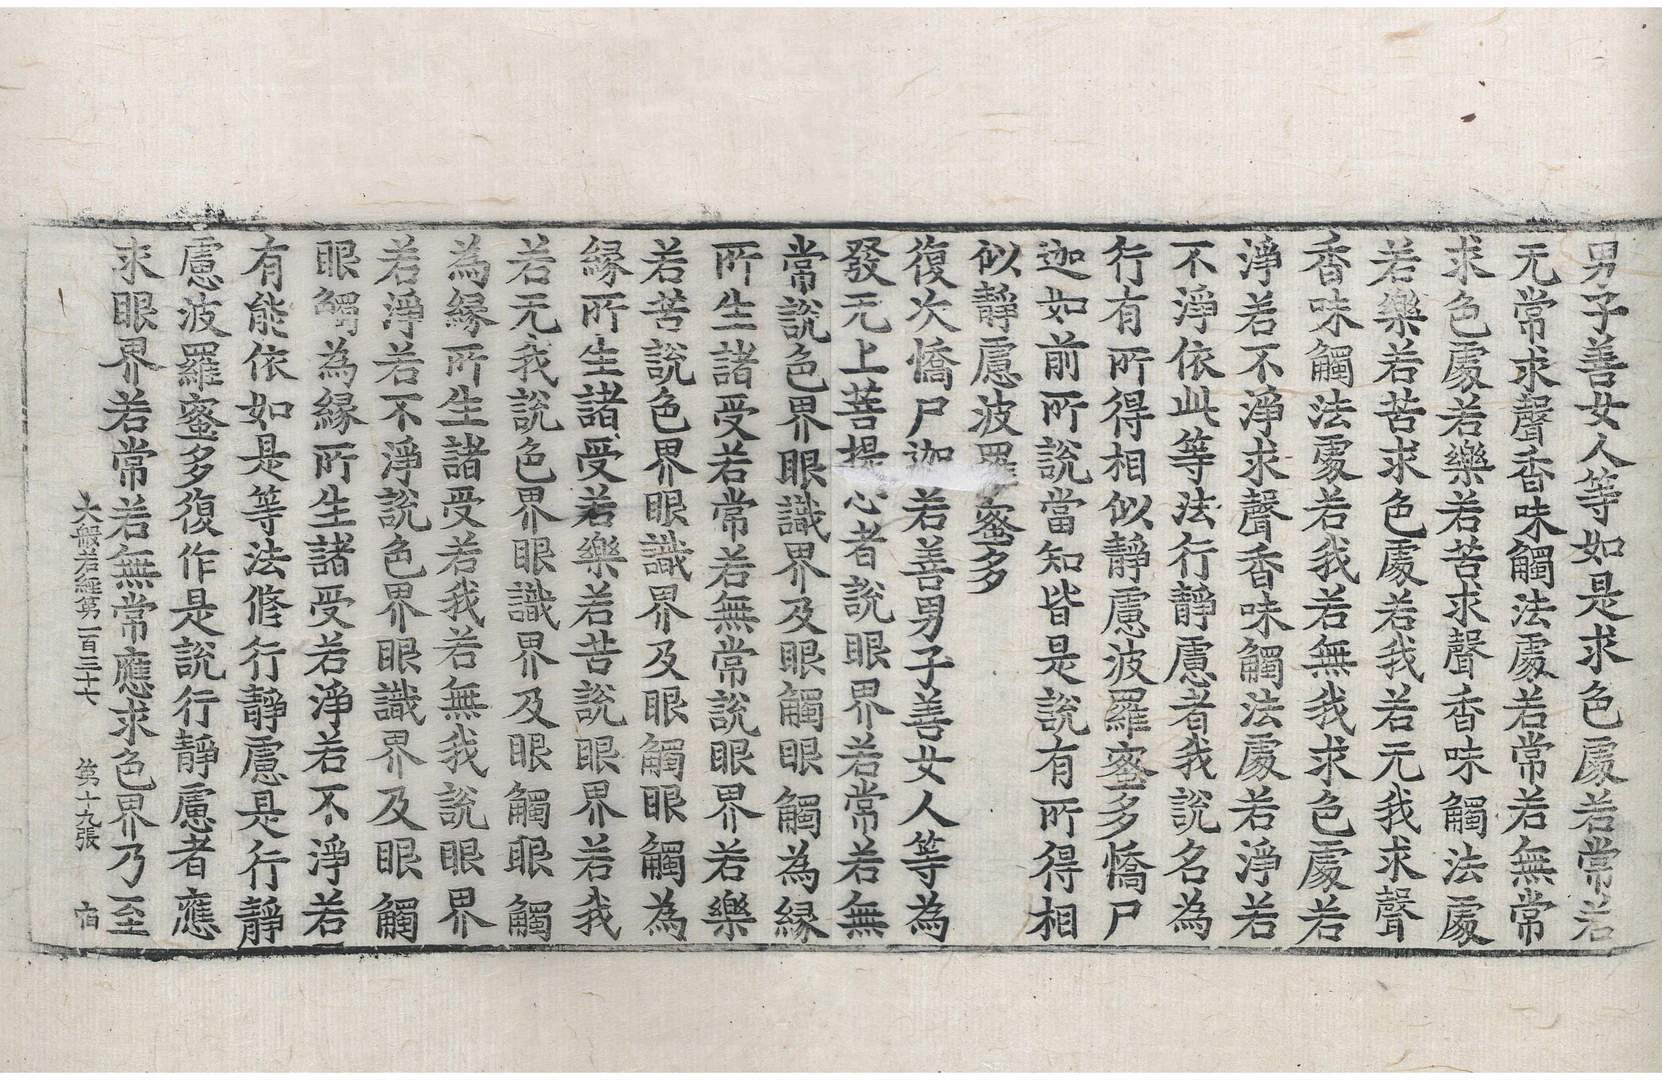 男子善女人等如是求色處若常若
无常求聲香味觸法處若常若無常
求色處若樂若苦求聲香味觸法處
若樂若苦求色處若我若无我求聲
香味觸法處若我若無我求色處若
淨若不淨求聲香味觸法處若淨若
不淨依此等法行靜慮者我說名為
行有所得相似靜慮波羅蜜多憍尸
迦如前所說當知皆是說有所得相
似靜慮波羅蜜多
復次憍尸迦若善男子善女人等為
發无上菩提心者說眼界若常若無
常說色界眼識界及眼觸眼觸為緣
所生諸受若常若無常說眼界若樂
若苦說色界眼識界及眼觸眼觸為
緣所生諸受若樂若苦說眼界若我
若无我說色界眼識界及眼觸眼觸
為緣所生諸受若我若無我說眼界
若淨若不淨說色界眼識界及眼觸
眼觸為緣所生諸受若淨若不淨若
有能依如是等法修行靜慮是行靜
慮波羅蜜多復作是說行靜慮者應
求眼界若常若無常應求色界乃至
大般若經第一百三十七 第十九張 宿